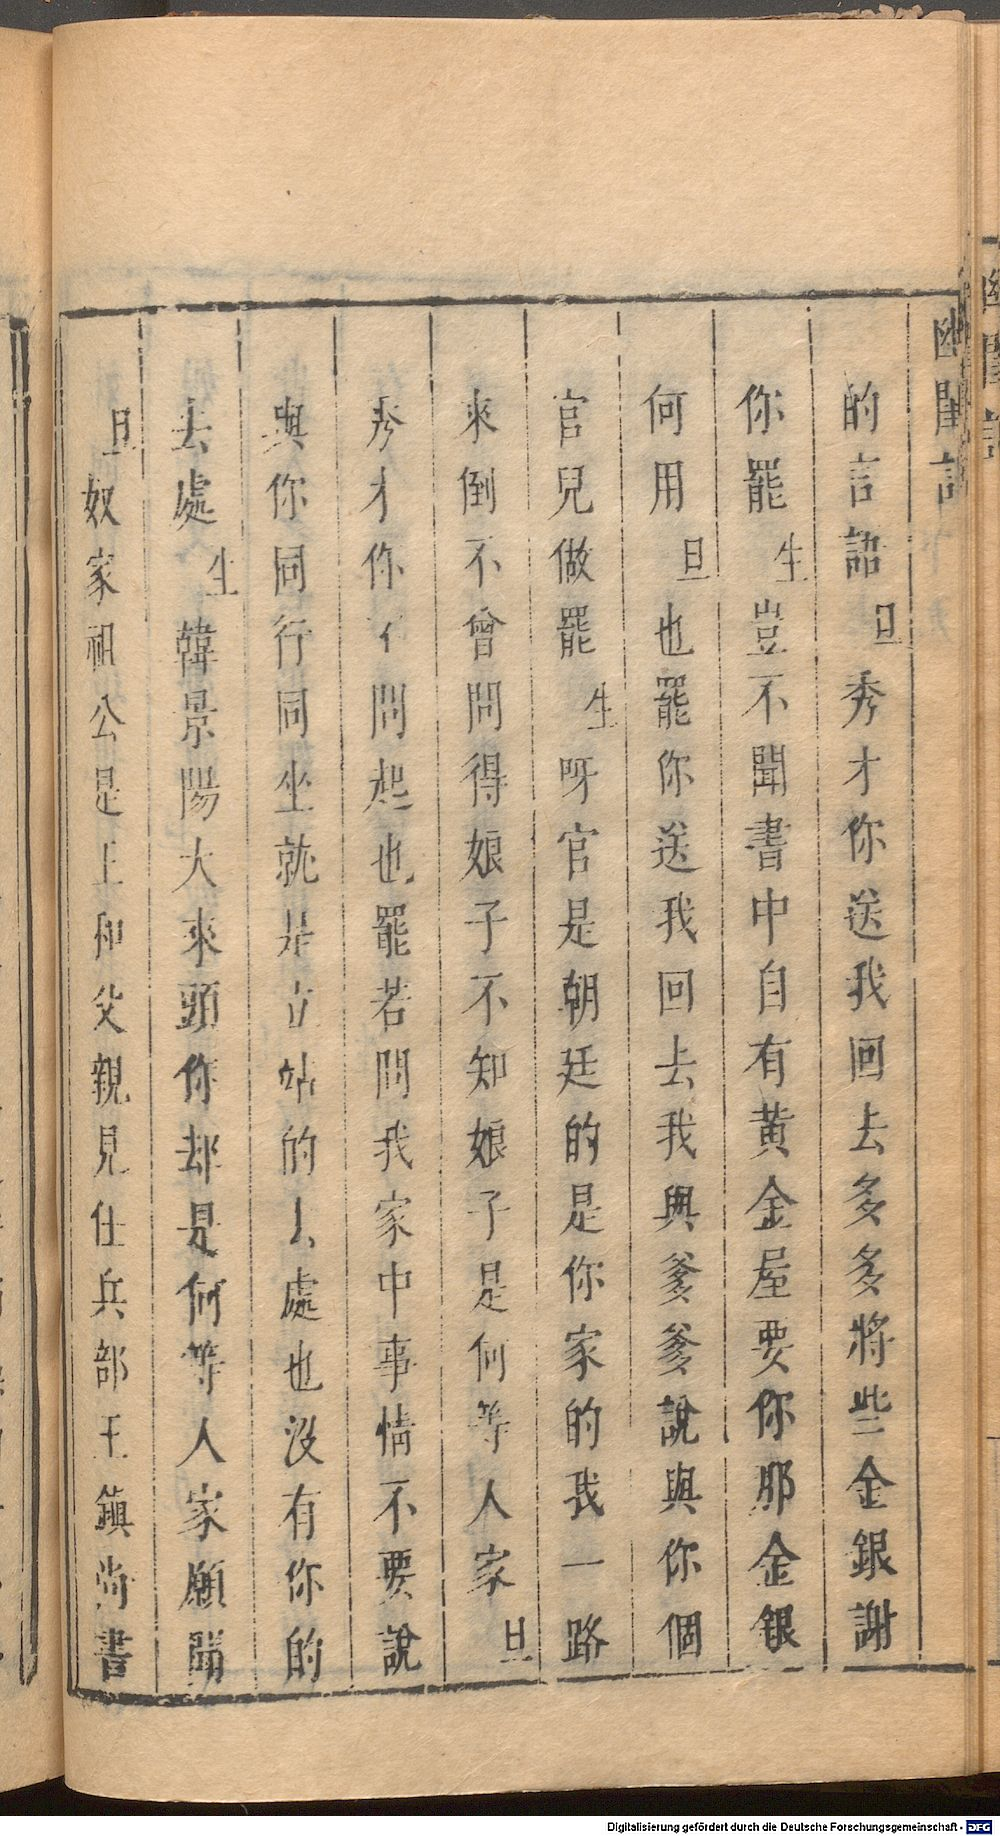 幽閨記
的言語旦秀才你送我回去多多將些金銀謝
你罷生豈不聞書中自有黄金屋要你那金銀
何用旦也罷你送我回去我與爹爹說與你個
官兒做罷生呀官是朝廷的是你家的我一路
來倒不曾問得娘子不知娘子是何等人家旦
秀才你不問起也罷若問我家中事情不要說
與你同行同坐就是立站的去處也没有你的
去處生韓景陽大來頭你却是何等人家願聞
旦奴家祖公是王和父親見任兵部王鎮尚書
Digitalisierung gefördert durch die Deutsche Forschungsgemeinschaft - DFG